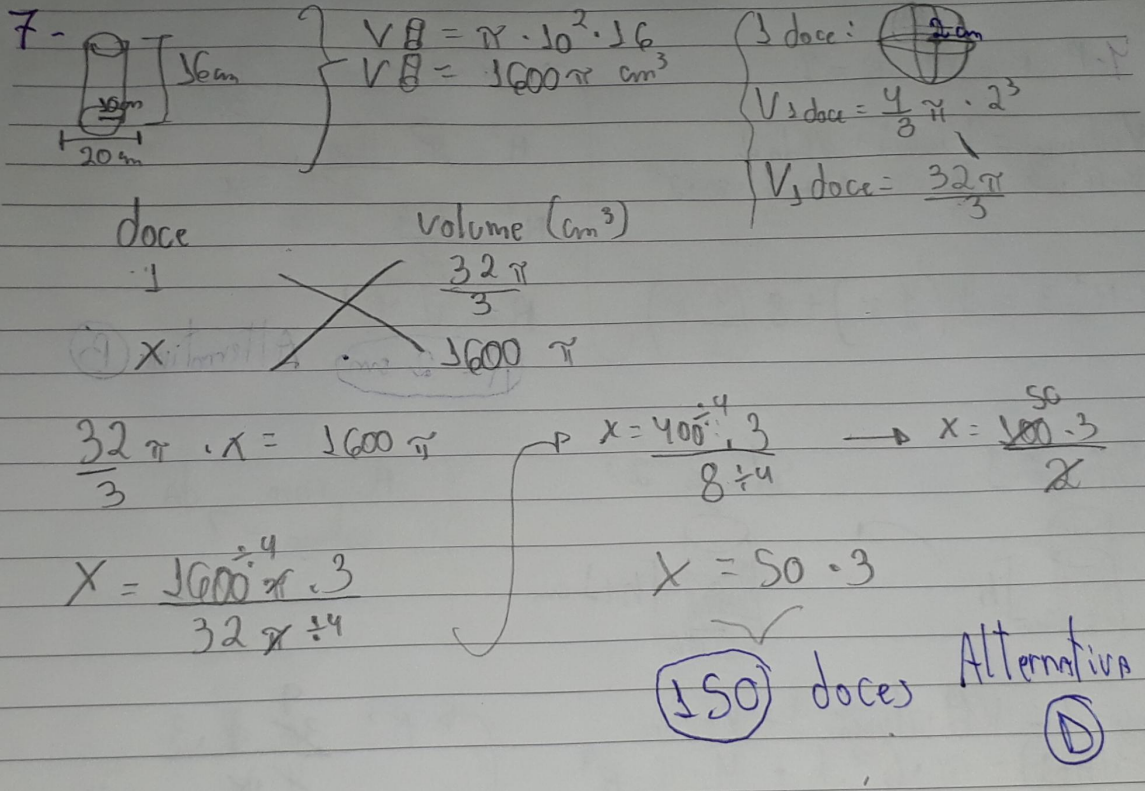 7-
16cm
10cm
20cm
V = π · 10² · 16
V = 1600π cm³
1 doce: 2cm
V1 doce = 4/3 π · 2³
V1 doce = 32π/3
doce volume (cm³)
1 32π/3
x 1600 π
32/3 π · x = 1600 π
X = 1600÷4 π · 3 / 32 π ÷4
x = 400÷4 · 3 / 8 ÷4 → x = 100 50 · 3 / 2
X = 50 · 3
150 doces Alternativa
D